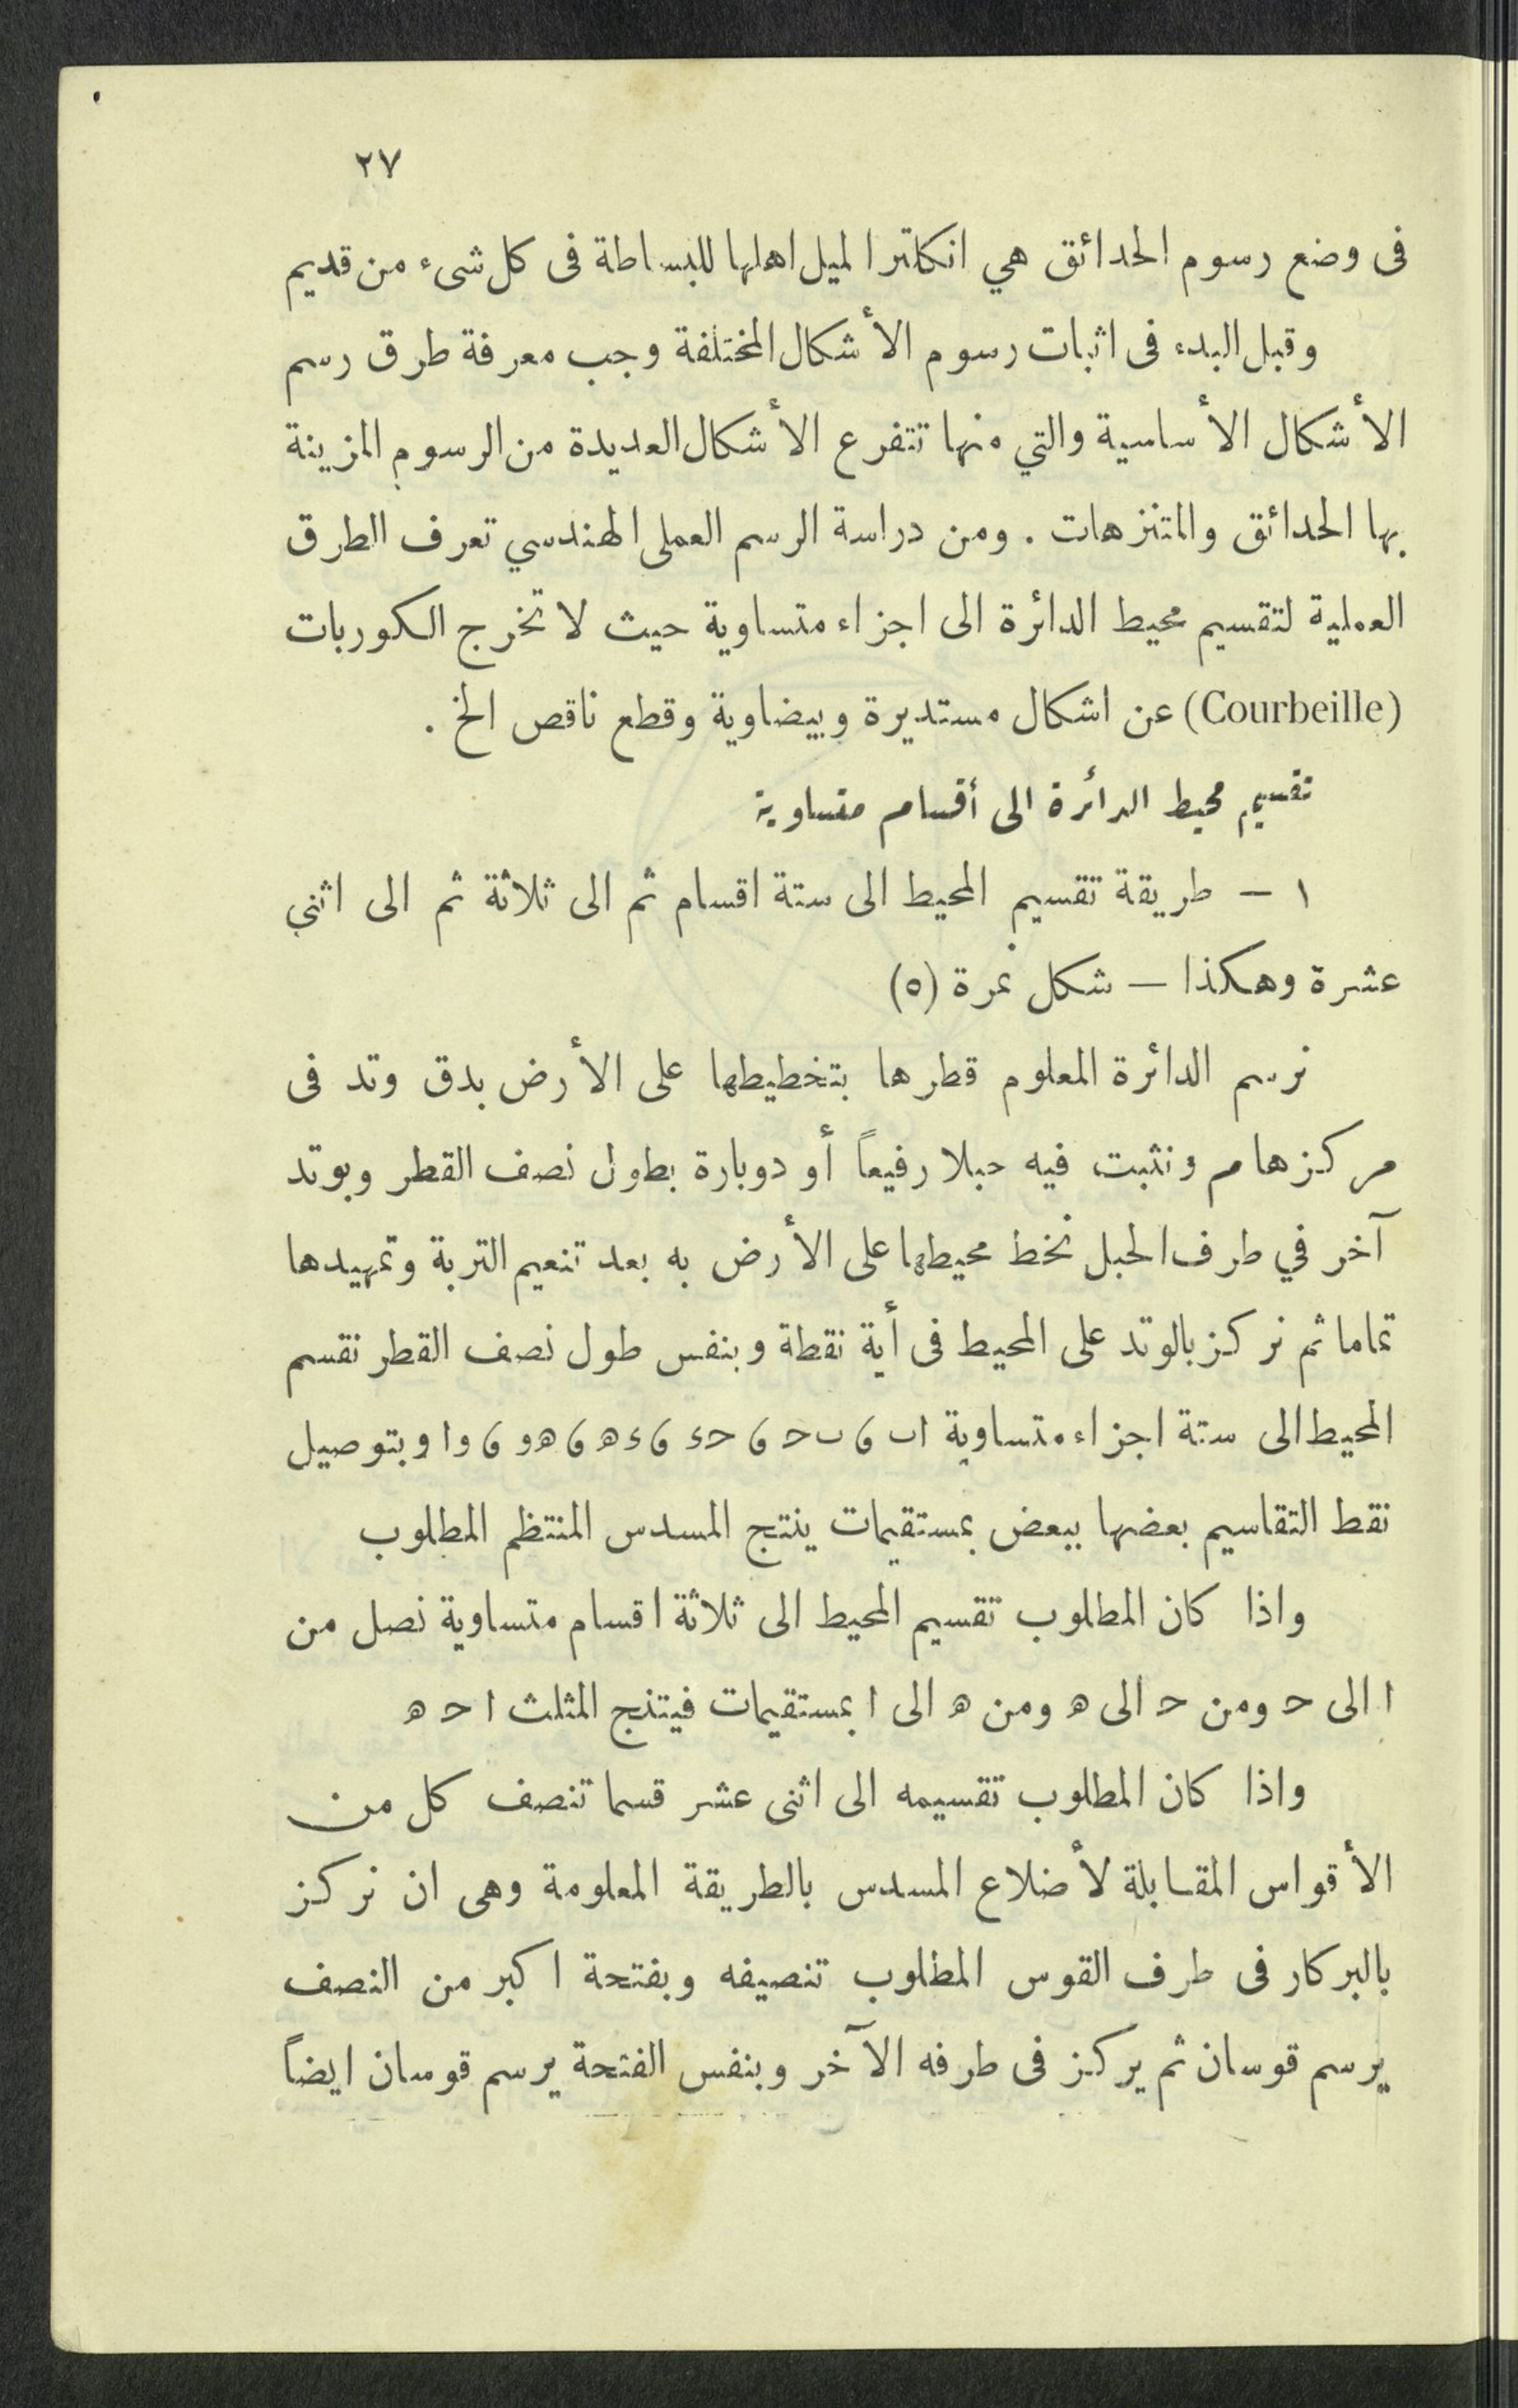 ٢٧
فى وضع رسوم الحدائق هي انكلترا لميل اهلها للبساطة فى كل شىء من قديم
وقبل البدء فى اثبات رسوم الأشكال المختلفة وجب معرفة طرق رسم
الأشكال الأساسية والتي منها تتفرع الأشكال العديدة من الرسوم المزينة
بها الحدائق والمتنزهات . ومن دراسة الرسم العملى الهندسي تعرف الطرق
العملية لتقسيم محيط الدائرة الى اجزاء متساوية حيث لا تخرج الكوربات
(Courbeille) عن اشكال مستديرة وبيضاوية وقطع ناقص الخ .
تقسيم محيط الدائرة الى أقسام متساوية
١ — طريقة تقسيم المحيط الى ستة اقسام ثم الى ثلاثة ثم الى اثني
عشرة وهكذا — شكل نمرة (٥)
نرسم الدائرة المعلوم قطرها بتخطيطها على الأرض بدق وتد فى
مركزها م ونثبت فيه حبلا رفيعاً أو دوبارة بطول نصف القطر وبوتد
آخر في طرف الحبل نخط محيطها على الأرض به بعد تنعيم التربة وتمهيدها
تماما ثم نركز بالوتد على المحيط فى أية نقطة وبنفس طول نصف القطر نقسم
المحيط الى ستة اجزاء متساوية ا ب ، ب ح ، ح ء ، ء ه ، ه و ، و ا وبتوصيل
نقط التقاسيم بعضها ببعض بمستقيمات ينتج المسدس المنتظم المطلوب
واذا كان المطلوب تقسيم المحيط الى ثلاثة اقسام متساوية نصل من
ا الى ح ومن ح الى ه ومن ه الى ا بمستقيمات فيتنج المثلث ا ح ه
واذا كان المطلوب تقسيمه الى اثنى عشر قسما تنصف كل من
الأقواس المقابلة لأضلاع المسدس بالطريقة المعلومة وهى ان نركز
بالبركار فى طرف القوس المطلوب تنصيفه وبفتحة اكبر من النصف
يرسم قوسان ثم يركز فى طرفه الآخر وبنفس الفتحة يرسم قوسان ايضاً